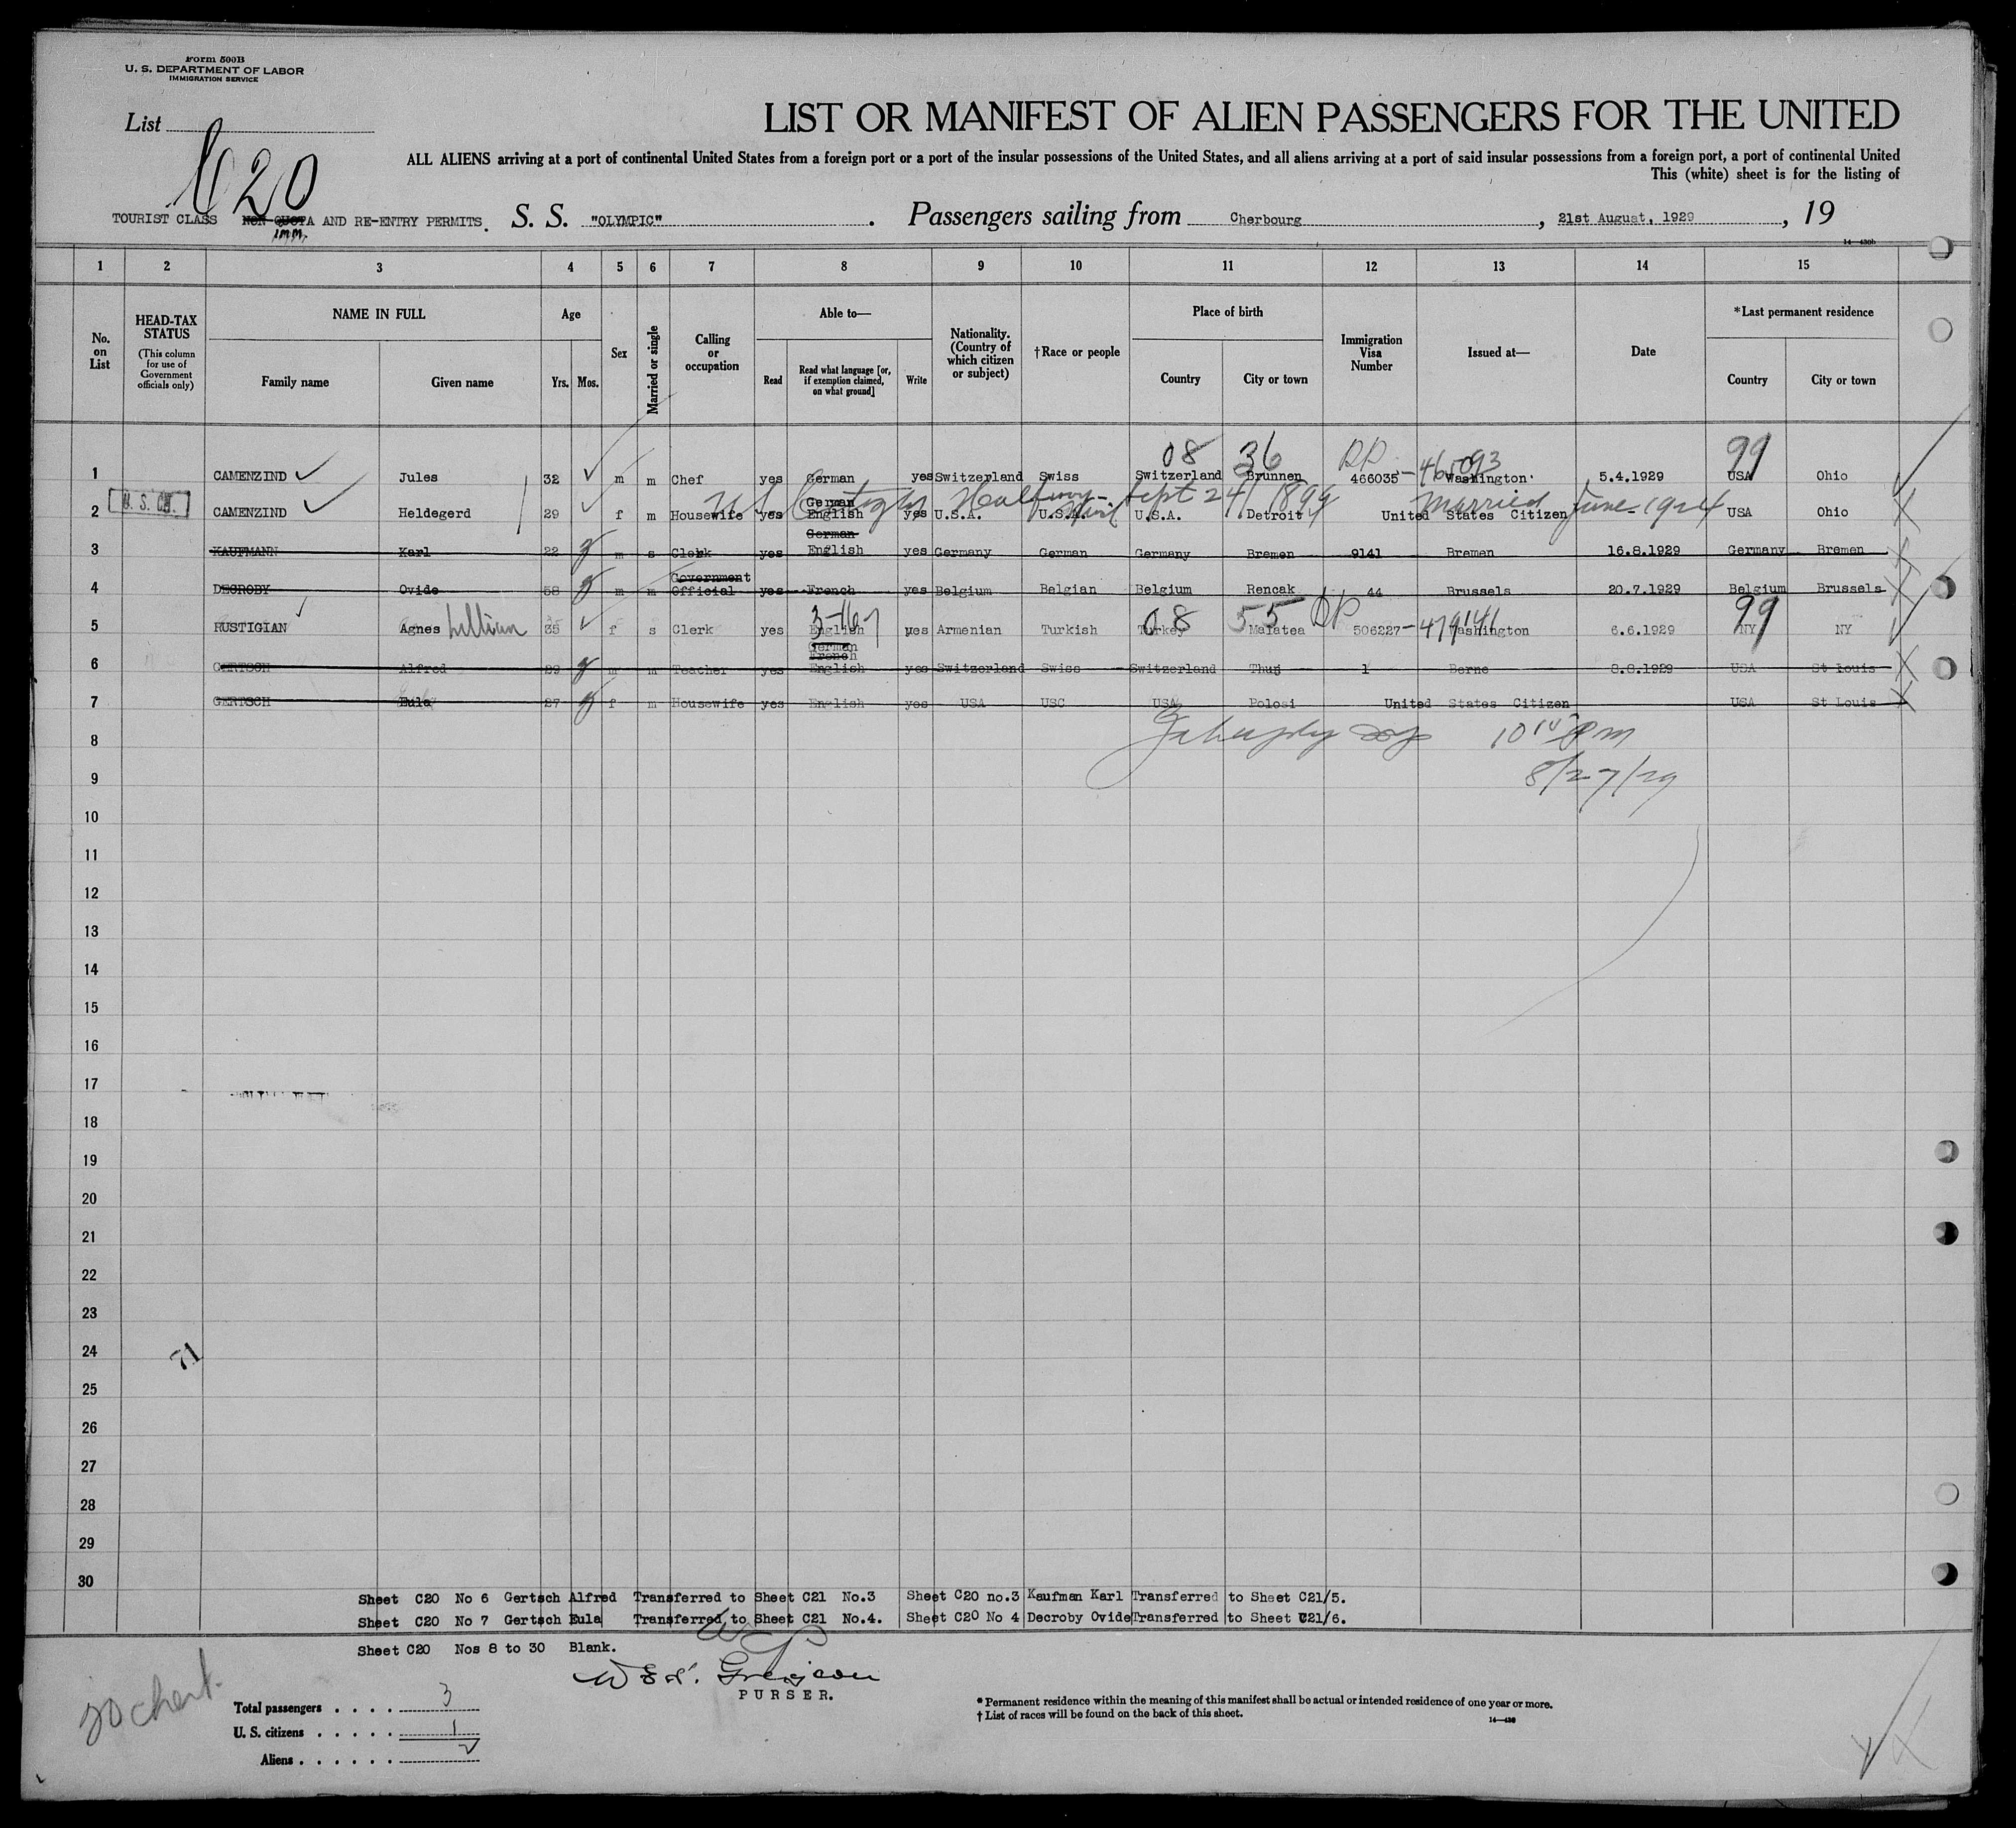 Form 500B
U. S. DEPARTMENT OF LABOR
IMMIGRATION SERVICE
List
C20
LIST OR MANIFEST OF ALIEN PASSENGERS FOR THE UNITED
ALL ALIENS arriving at a port of continental United States from a foreign port or a port of the insular possessions of the United States, and all aliens arriving at a port of said insular possessions from a foreign port, a port of continental United
This (white) sheet is for the listing of
TOURIST CLASS NON QUOTA AND RE-ENTRY PERMITS. S. S. "OLYMPIC". Passengers sailing from Cherbourg, 21st August, 1929, 19
imm.
14—430b
1 2 3 4 5 6 7 8 9 10 11 12 13 14 15
No. on List
HEAD-TAX STATUS
(This column for use of Government officials only)
NAME IN FULL
Family name Given name
Age
Yrs. Mos.
Sex
Married or single
Calling or occupation
Able to—
Read Read what language [or, if exemption claimed, on what ground] Write
Nationality. (Country of which citizen or subject)
†Race or people
Place of birth
Country City or town
Immigration Visa Number
Issued at—
Date
*Last permanent residence
Country City or town
08 36 RP -465093 99
1 CAMENZIND Jules 32 m m Chef yes German yes Switzerland Swiss Switzerland Brunnen 466035 Washington 5.4.1929 USA Ohio
Sept 24 1899 Married June 1924
German
2 U. S. CIT. CAMENZIND Heldegerd 29 f m Housewife yes English yes U.S.A. U.S.A. U.S.A. Detroit United States Citizen USA Ohio
German
3 KAUFMANN Karl 22 m s Clerk yes English yes Germany German Germany Bremen 9141 Bremen 16.8.1929 Germany Bremen
Government
4 DECROBY Ovide 58 m m Official yes French yes Belgium Belgian Belgium Rencak 44 Brussels 20.7.1929 Belgium Brussels
3-167 08 55 RP -479141 99
5 RUSTIGIAN Agnes Lillian 35 f s Clerk yes English yes Armenian Turkish Turkey Malatea 506227 Washington 6.6.1929 NY NY
German
French
6 GERTSCH Alfred 29 m m Teacher yes English yes Switzerland Swiss Switzerland Thun 1 Berne 8.8.1929 USA St Louis
7 GERTSCH Eula 27 f m Housewife yes English yes USA USC USA Polosi United States Citizen USA St Louis
8
10 10 PM
9
8/27/29
10
11
12
13
14
15
16
17
18
19
20
21
22
23
24
71
25
26
27
28
29
30
Sheet C20 No 6 Gertsch Alfred Transferred to Sheet C21 No.3 Sheet C20 no.3 Kaufman Karl Transferred to Sheet C21/5.
Sheet C20 No 7 Gertsch Eula Transferred to Sheet C21 No.4. Sheet C20 No 4 Decroby Ovide Transferred to Sheet C21/6.
Sheet C20 Nos 8 to 30 Blank.
PURSER.
Total passengers . . . . 3
U. S. citizens . . . . . 1
Aliens . . . . . . 2
* Permanent residence within the meaning of this manifest shall be actual or intended residence of one year or more.
† List of races will be found on the back of this sheet.
14—430